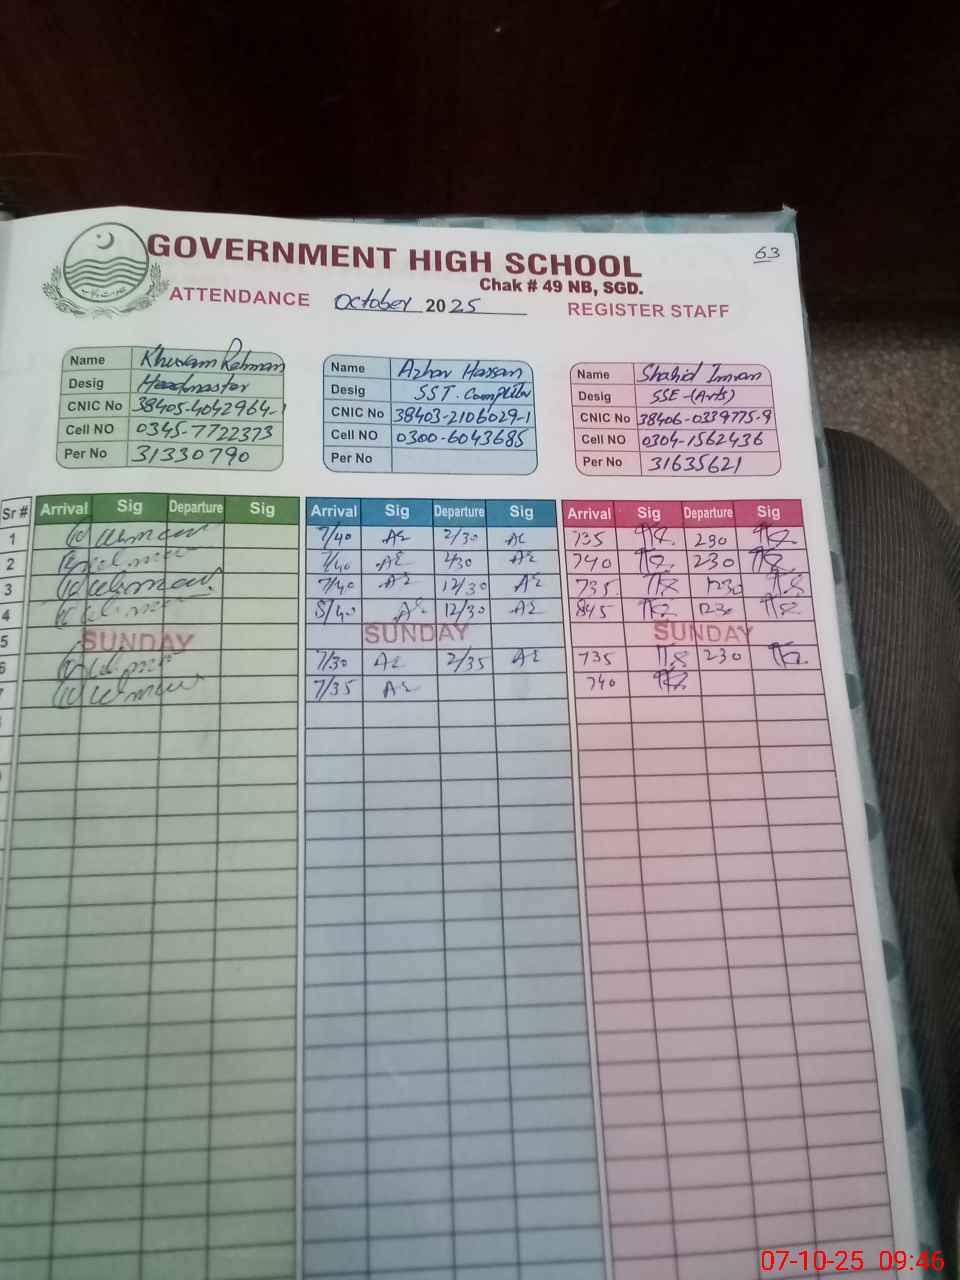 63
GOVERNMENT HIGH SCHOOL
Chak # 49 NB, SGD.
ATTENDANCE October 2025 REGISTER STAFF
Name Khurram Rehman
Desig Headmaster
CNIC No 38405-4042964-1
Cell NO 0345-7722373
Per No 31330790
Name Azhar Hassan
Desig SST. Computer
CNIC No 38403-2106029-1
Cell NO 0300-6043685
Per No
Name Shahid Imran
Desig SSE-(Arts)
CNIC No 38406-0339775-9
Cell NO 0304-1562436
Per No 31635621
Sr # Arrival Sig Departure Sig Arrival Sig Departure Sig Arrival Sig Departure Sig
1 7/40 2/30 735 230
2 7/40 2/30 740 230
3 7/40 12/30 735 1230
4 8/40 12/30 845 1230
5 SUNDAY SUNDAY SUNDAY
6 7/30 2/35 735 230
7 7/35 740
07-10-25 09:46